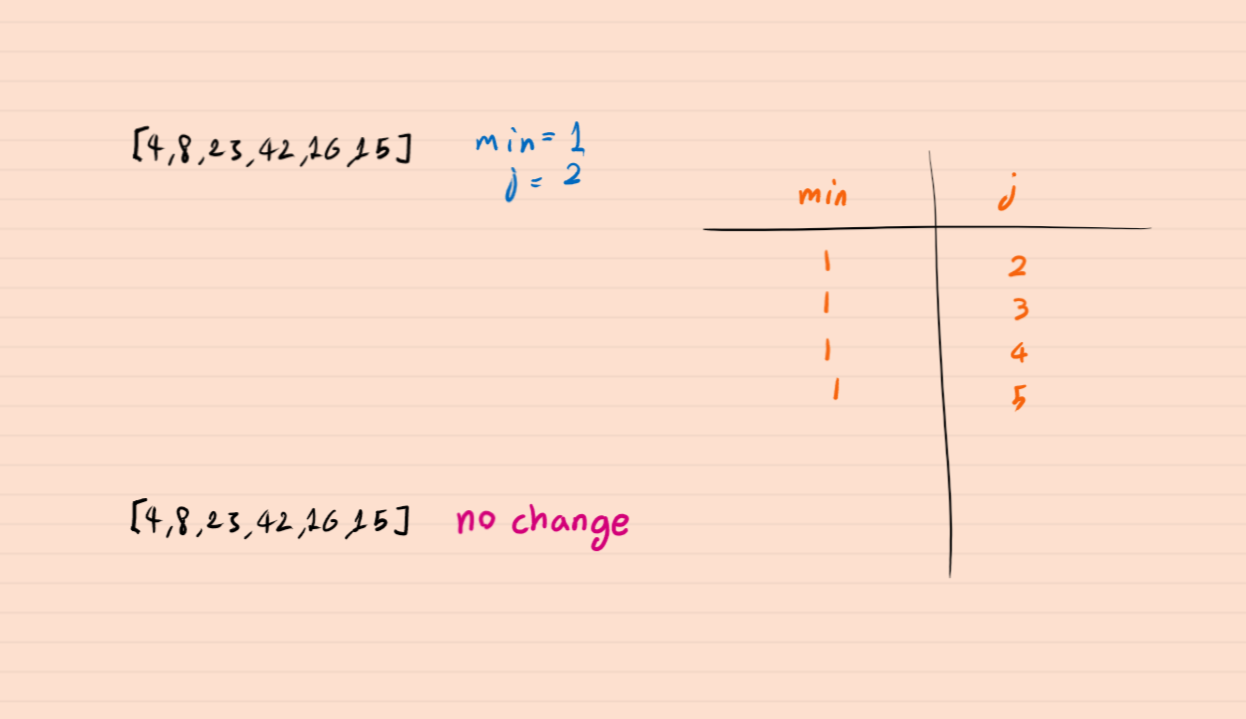 [4,8,23,42,16,15] min = 1
j = 2
min j
1 2
1 3
1 4
1 5
[4,8,23,42,16,15] no change